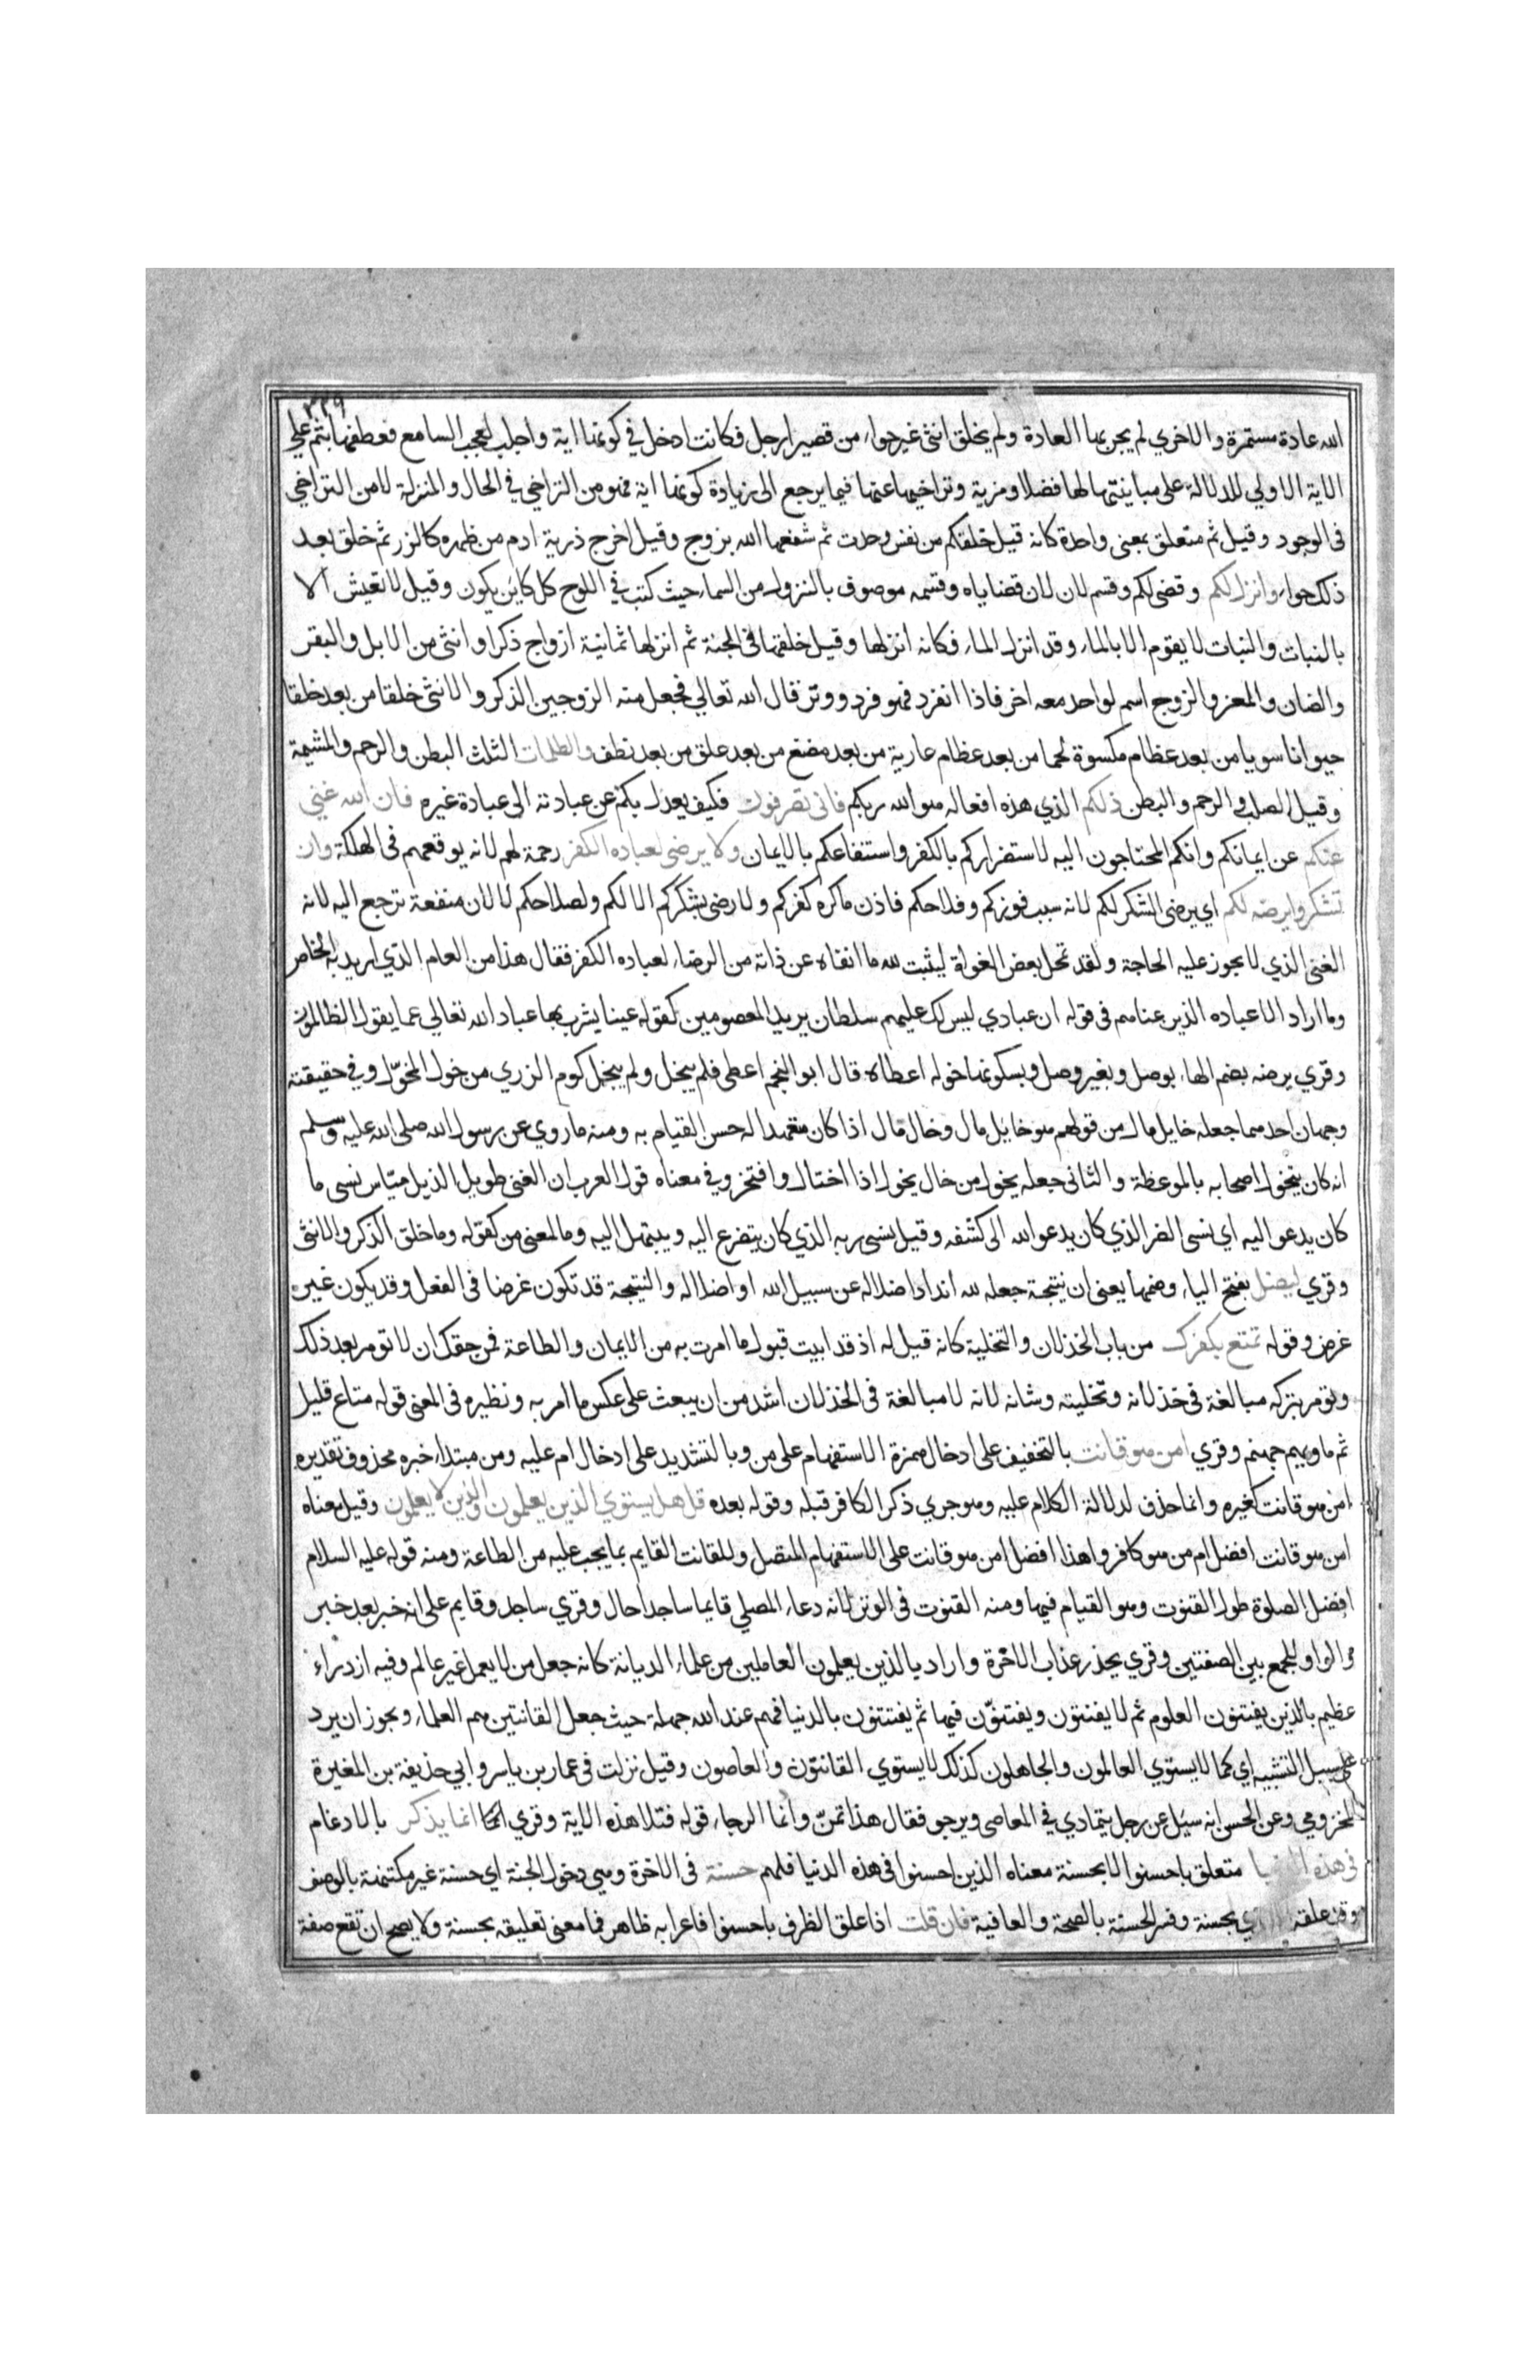 ٣٢٩
الله عادة مستمرة والاخري لم يجر بها العادة ولم يخلق انثى غير حواء من قصيرا رجل فكانت ادخل في كونها اية واجلب لعجب السامع فعطفها بثم علي
الاية الاولي للدلالة على مباينتها لها فضلا ومزية وتراخيها عنها فيما يرجع الى زيادة كونها اية فهو من التراخي في الحال والمنزلة لا من التراخي
فى الوجود وقيل ثم متعلق بمعنى واحدة كانه قيل خلقكم من نفس وحدت ثم شفعها الله بزوج وقيل اخرج ذرية ادم من ظهره كالزر ثم خلق بعد
ذلك حواء وانزل لكم وقضى لكم وقسم لان لان قضاياه وقسمه موصوف بالنزول من السماء حيث كتب في اللوح كل كاين يكون وقيل لا تعيش الا
بالنبات والنبات لا يقوم الا بالماء وقد انزل الماء فكانه انزلها وقيل خلقها فى الجنة ثم انزلها ثمانية ازواج ذكرا وانثى من الابل والبقر
والضان والمعز والزوج اسم لواحد معه اخر فاذا انفرد فهو فرد ووتر قال الله تعالي فجعل منه الزوجين الذكر والانثى خلقا من بعد خلقا
حيوانا سويا من بعد عظام مكسوة لحما من بعد عظام عارية من بعد مضغ من بعد علق من بعد نطف والظلمات الثلث البطن والرحم والمشيمة
وقيل الصلب والرحم والبطن ذلكم الذي هذه افعاله هو الله ربكم فانى تصرفون فكيف يعدل بكم عن عبادته الى عبادة غيره فان الله غني
عنكم عن ايمانكم وانكم المحتاجون اليه لاستضراركم بالكفر واستنفاعكم بالايمان ولا يرضى لعباده الكفر رحمة لهم لانه يوقعهم فى الهلكة وان
تشكروا يرضه لكم اي يرضى الشكر لكم لانه سبب فوزكم وفلاحكم فاذن ما كره كفركم ولا رضى بشكركم الا لكم ولصلاحكم لا لان منفعة ترجع اليه لانه
الغنى الذي لا يجوز عليه الحاجة ولقد تمحل بعض الغواة ليثبت لله ما انفاه عن ذاته من الرضاء لعباده الكفر فقال هذا من العام الذي اريد به الخاص
وما اراد الا عباده الذين عناهم فى قوله ان عبادي ليس لك عليهم سلطان يريد المعصومين كقوله عينا يشرب بها عباد الله تعالي عما يقول الظالمون
وقري يرضه بضم الهاء بوصل وبغير وصل وبسكونها خوله اعطاه قال ابو النجم اعطى فلم يبخل ولم يبخل كوم الزري من خول المخوّل وفي حقيقته
وجهان احدهما جعله خايل مال من قولهم هو خايل مال وخال مال اذا كان متعهدا له حسن القيام به ومنه ما روي عن رسول الله صلى الله عليه وسلم
انه كان يتخول اصحابه بالموعظة والثانى جعله يخول من خال يخول اذا اختال وافتخر وفي معناه قول العرب ان الغنى طويل الذيل ميّاس نسى ما
كان يدعو اليه اي نسى الضر الذي كان يدعو الله الى كشفه وقيل نسى ربه الذي كان يتضرع اليه ويبتهل اليه وما المعنى من كقوله وما خلق الذكر والانثى
وقري ليضل بفتح الياء وضمها يعنى ان نتيجة جعله لله اندادا ضلاله عن سبيل الله او اضلاله والنتيجة قد تكون غرضا فى الفعل وقد يكون غير
غرض وقوله تمتع بكفرك من باب الخذلان والتخلية كانه قيل له اذ قد ابيت قبول ما امرت به من الايمان والطاعة فمن حقك ان لا تومر بعد ذلك
وتومر بتركه مبالغة فى خذلانه وتخليته وشانه لانه لا مبالغة فى الخذلان اشد من ان يبعث على عكس ما امر به ونظيره فى المعنى قوله متاع قليل
ثم ماويهم جهنم وقري امن هو قانت بالتخفيف على ادخال همزة الاستفهام على من وبالتشديد على ادخال ام عليه ومن مبتداء خبره محذوف تقديره
امن هو قانت كغيره وانما حذف لدلالة الكلام عليه وهو جري ذكر الكافر قبله وقوله بعده قل هل يستوي الذين يعلمون والذين لا يعلمون وقيل معناه
امن هو قانت افضل ام من هو كافر واهذا افضل امن هو قانت على الاستفهام المتصل وللقانت القايم بما يجب عليه من الطاعة ومنه قوله عليه السلام
افضل الصلوة طول القنوت وهو القيام فيها ومنه القنوت فى الوتر لانه دعاء المصلي قايما ساجدا حال وقري ساجد وقايم على انه خبر بعد خبر
والواو للجمع بين الصفتين وقري يحذر عذاب الاخرة واراد بالذين يعلمون العاملين من علماء الديانة كانه جعل من لا يعمل غير عالم وفيه ازدراء
عظيم بالذين يقتنون العلوم ثم لا يقنتون ويفتنّون فيها ثم يفتتنون بالدنيا فهم عند الله جهلة حيث جعل القانتين هم العلماء ويجوز ان يرد
على سبيل التشبيه اي كما لا يستوي العالمون والجاهلون كذلك لا يستوي القانتون والعاصون وقيل نزلت فى عمار بن ياسر وابي حذيفة بن المغيرة
المخزومي وعن الحسن انه سئل عن رجل يتمادي في المعاصى ويرجو فقال هذا تمنّ وانما الرجاء قوله فتلا هذه الاية وقري انما يذكر بالادغام
فى هذه الدنيا متعلق باحسنوا لا بحسنة معناه الذين احسنوا فى هذه الدنيا فلهم حسنة فى الاخرة وهى دخول الجنة اي حسنة غير مكتنهة بالوصف
وقد علقه بحسنة وفسر الحسنة بالصحة والعافية فان قلت اذا علق الظرف باحسنوا فاعرابه ظاهر فما معنى تعليقه بحسنة ولا يصح ان تقع صفة